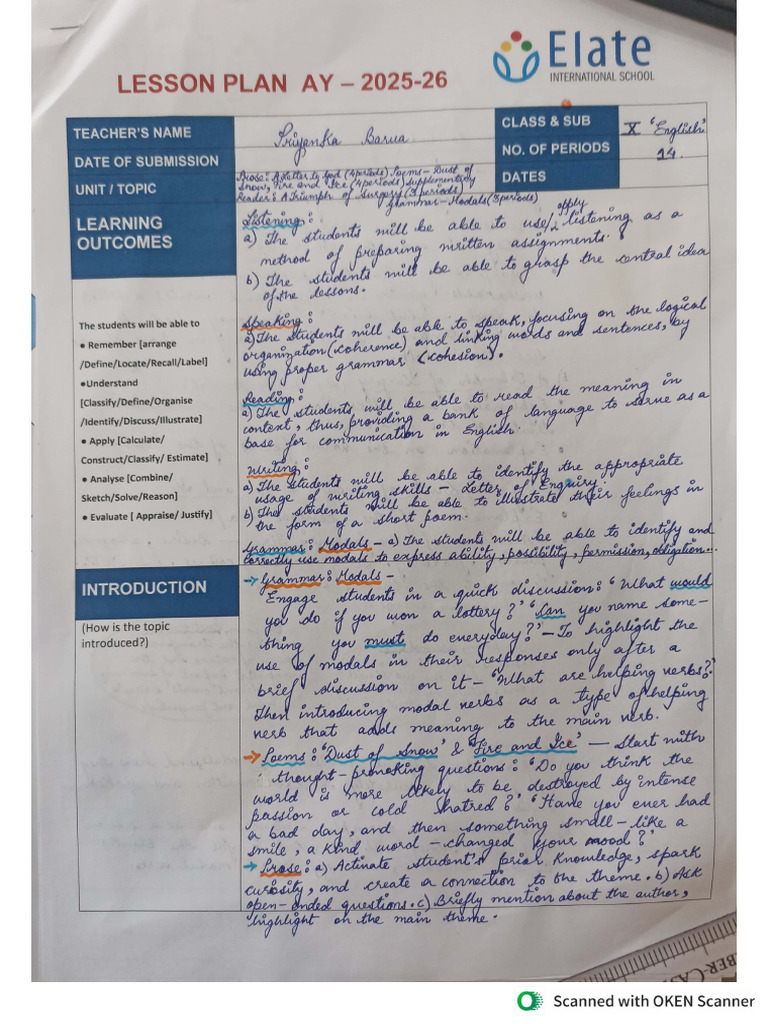 Elate
INTERNATIONAL SCHOOL
LESSON PLAN AY – 2025-26
TEACHER'S NAME
Priyenka Barua
CLASS & SUB
X 'English'
DATE OF SUBMISSION
NO. OF PERIODS
14.
UNIT / TOPIC
Prose: A Letter to God (4 periods) Poems – Dust of
Snow, Fire and Ice (4 periods) Supplementary
Reader: A Triumph of Surgery (3 periods)
Grammar – Modals (3 periods)
DATES
LEARNING
OUTCOMES
Listening:
a) The students will be able to use/apply listening as a
method of preparing written assignments.
b) The students will be able to grasp the central idea
of the lessons.
The students will be able to
• Remember [arrange
/Define/Locate/Recall/Label]
•Understand
[Classify/Define/Organise
/Identify/Discuss/Illustrate]
• Apply [Calculate/
Construct/Classify/ Estimate]
• Analyse [Combine/
Sketch/Solve/Reason]
• Evaluate [ Appraise/ Justify]
Speaking:
a) The students will be able to speak, focusing on the logical
organization (coherence) and linking words and sentences, by
using proper grammar (cohesion).
Reading:
a) The students will be able to read the meaning in
context, thus, providing a bank of language to serve as a
base for communication in English.
Writing:
a) The students will be able to identify the appropriate
usage of writing skills – Letter of Enquiry.
b) The students will be able to illustrate their feelings in
the form of a short poem.
Grammar: Modals – a) The students will be able to identify and
correctly use modals to express ability, possibility, permission, obligation...
INTRODUCTION
(How is the topic
introduced?)
→ Grammar: Modals –
Engage students in a quick discussion: 'What would
you do if you won a lottery?' 'Can you name some-
thing you must do everyday?' – To highlight the
use of modals in their responses only after a
brief discussion on it – 'What are helping verbs?'
Then introducing modal verbs as a type of helping
verb that adds meaning to the main verb.
→ Poems: 'Dust of Snow' & 'Fire and Ice' – Start with
thought-provoking questions: 'Do you think the
world is more likely to be destroyed by intense
passion or cold hatred?' 'Have you ever had
a bad day, and then something small – like a
smile, a kind word – changed your mood?'
→ Prose: a) Activate student's prior knowledge, spark
curiosity, and create a connection to the theme. b) Ask
open-ended questions. c) Briefly mention about the author,
highlight on the main theme.
Scanned with OKEN Scanner